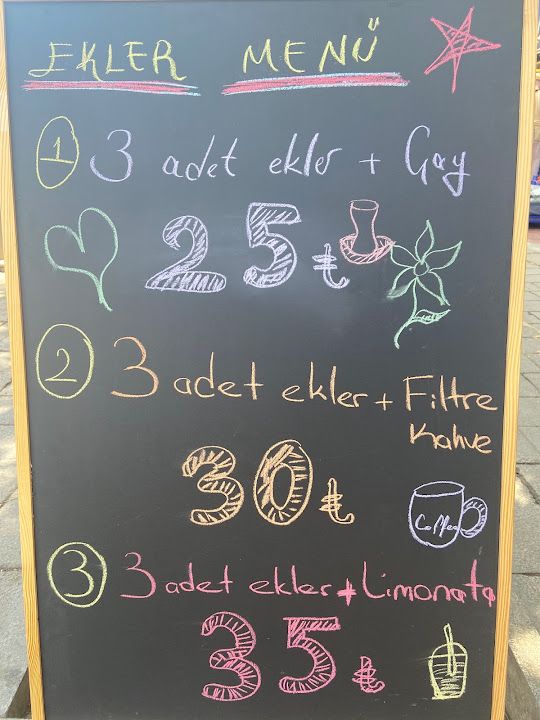 EKLER MENÜ
1 3 adet ekler + Çay
25 ₺
2 3 adet ekler + Filtre
Kahve
30 ₺
Coffee
3 3 adet ekler + Limonata
35 ₺